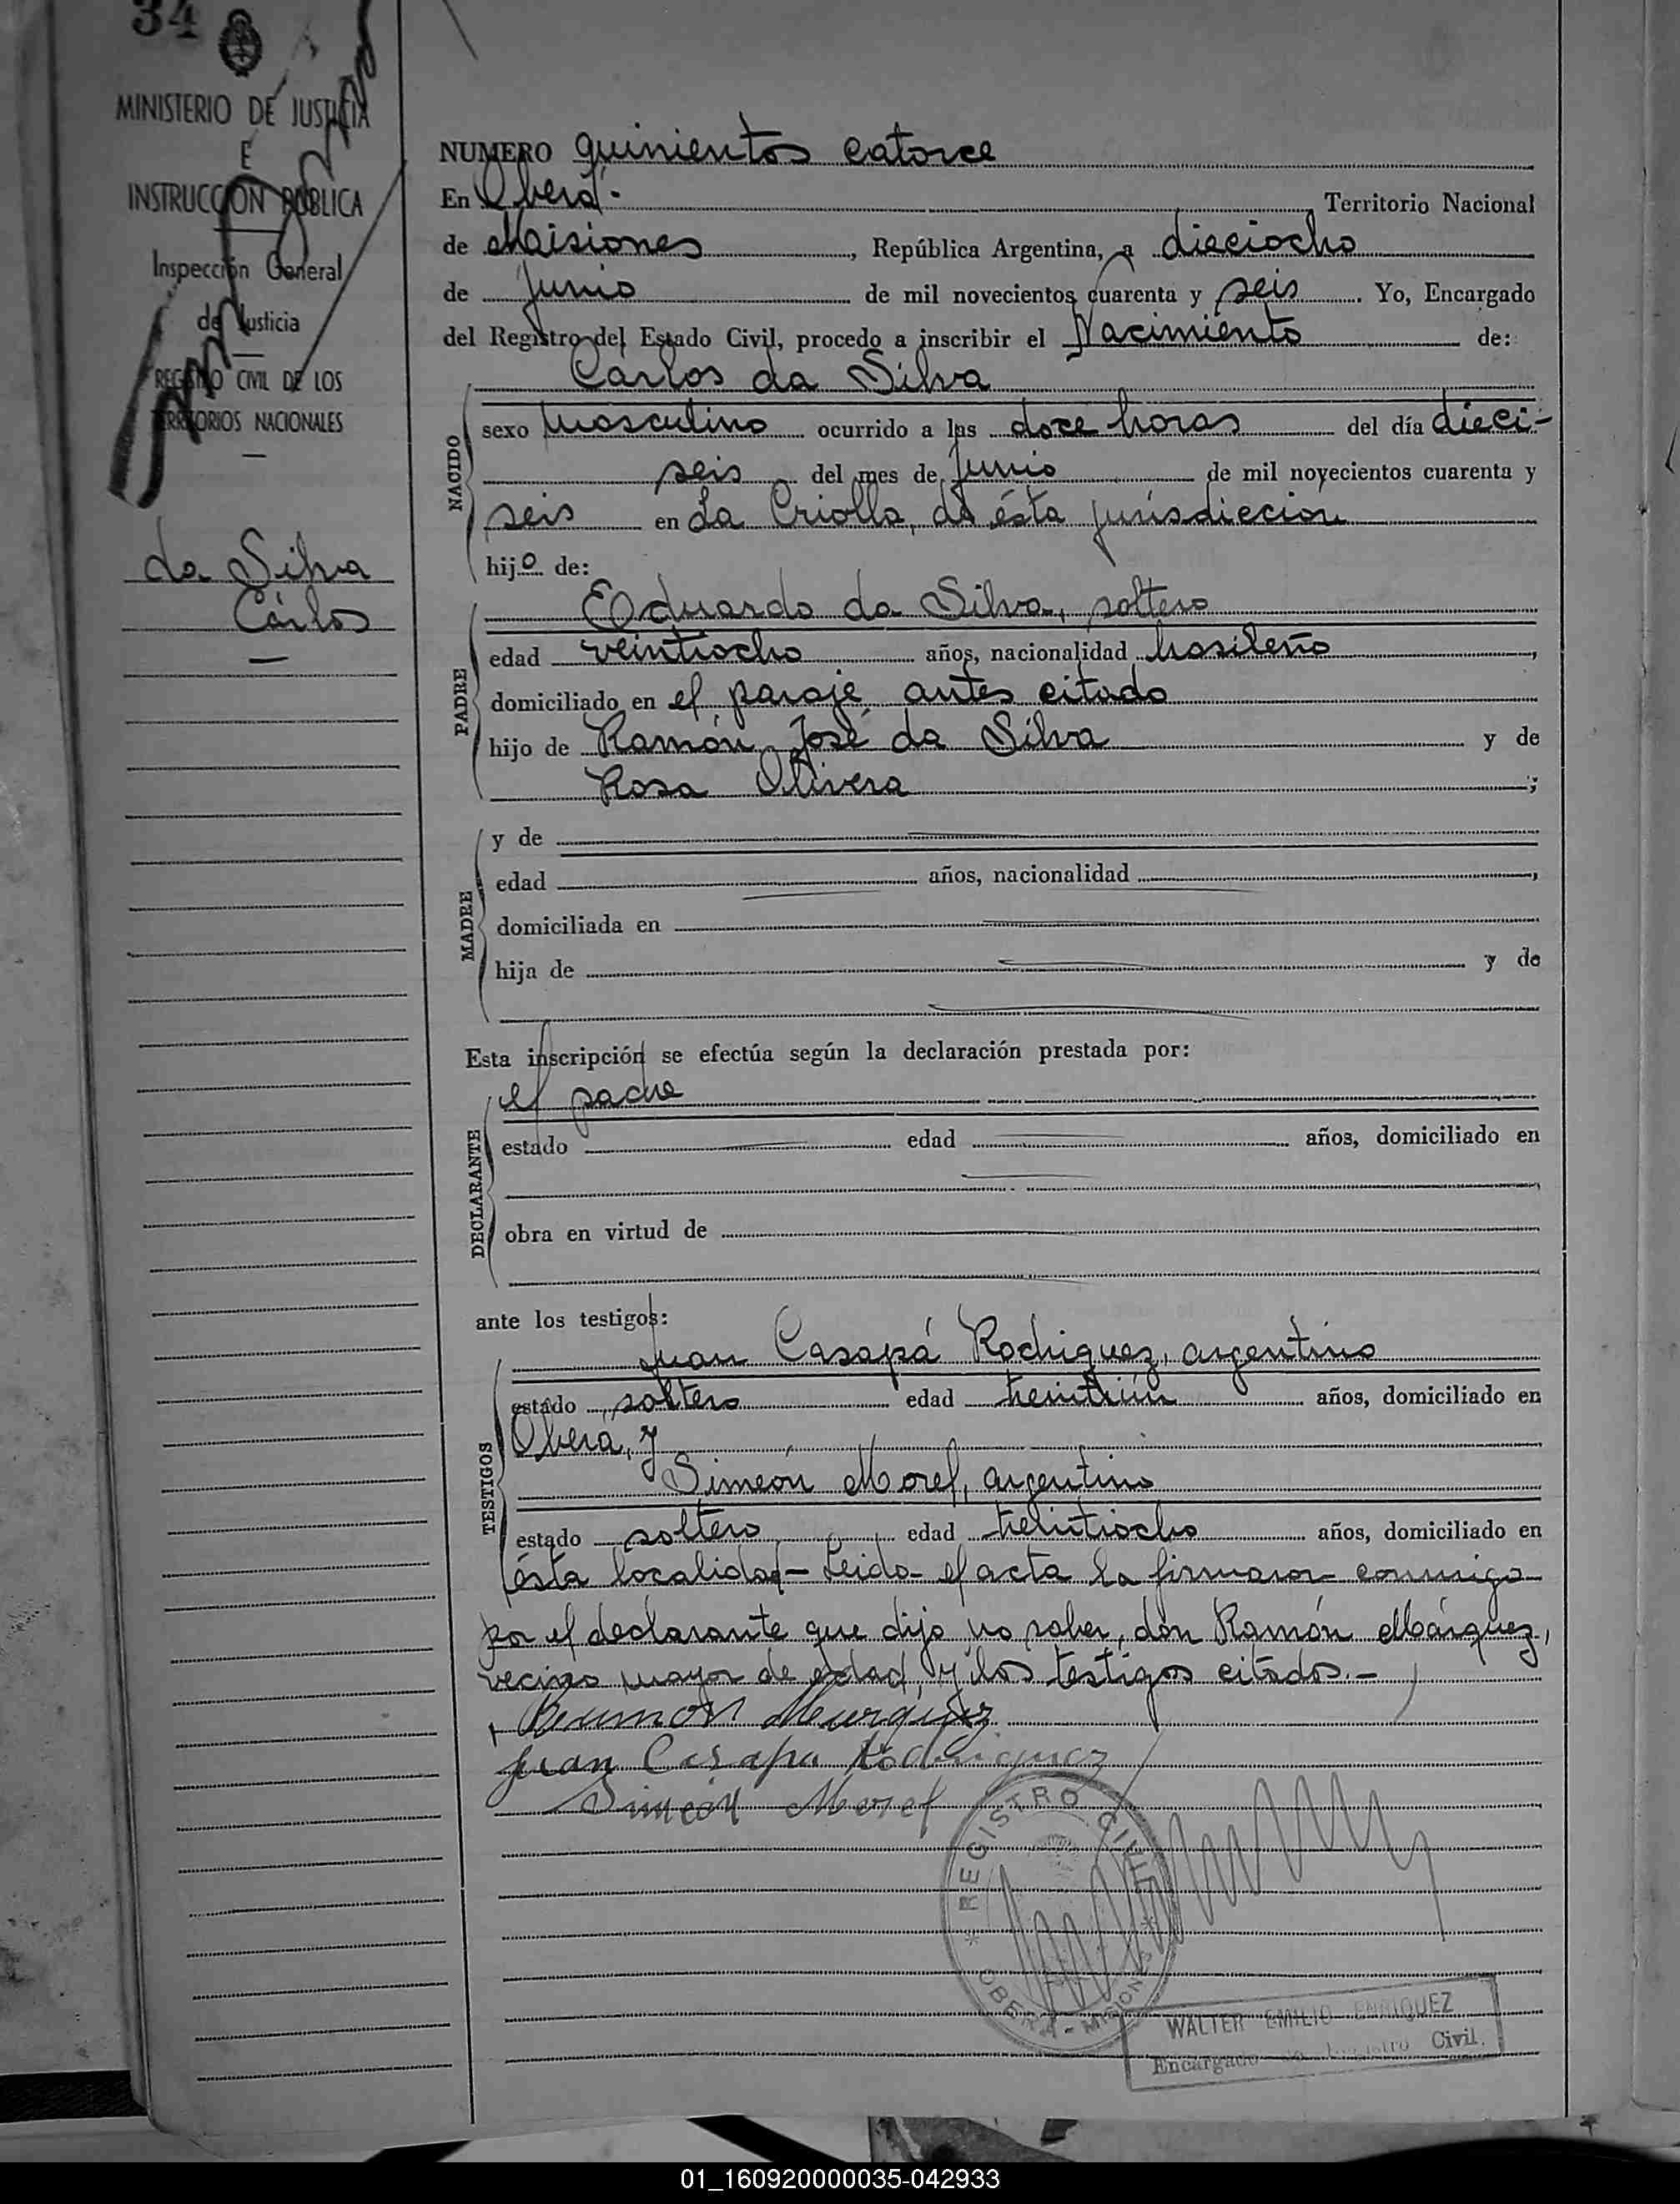 34
MINISTERIO DE JUSTICIA
E
INSTRUCCION PUBLICA
Inspección General
de Justicia
REGISTRO CIVIL DE LOS
TERRITORIOS NACIONALES
da Silva
Cárlos
NUMERO quinientos catorce
En Oberá.- Territorio Nacional
de Misiones, República Argentina, a dieciocho
de Junio de mil novecientos cuarenta y seis. Yo, Encargado
del Registro del Estado Civil, procedo a inscribir el Nacimiento de:
Carlos da Silva
NACIDO
sexo masculino ocurrido a las doce horas del día dieci-
seis del mes de Junio de mil novecientos cuarenta y
seis en La Criolla, de ésta jurisdiccion
hijo de:
Eduardo da Silva, soltero
PADRE
edad veintiocho años, nacionalidad brasileño,
domiciliado en el paraje antes citado
hijo de Ramón José da Silva y de
Rosa Olivera;
MADRE
y de
edad años, nacionalidad,
domiciliada en
hija de y de
Esta inscripción se efectúa según la declaración prestada por:
el padre
DECLARANTE
estado edad años, domiciliado en
obra en virtud de
ante los testigos:
Juan Casapá Rodriguez, argentino
TESTIGOS
estado soltero edad años, domiciliado en
Oberá, y
Simeón Morel, argentino
estado soltero edad veintiocho años, domiciliado en
ésta localidad- Leida el acta la firmaron conmigo
por el declarante que dijo no saber, don Ramón Márquez,
vecino mayor de edad, y los testigos citados.-
Ramon Marquez
Juan Casapa Rodriguez
Simeón Morel
REGISTRO CIVIL
OBERÁ - MISIONES
WALTER EMILIO ENRIQUEZ
Encargado Registro Civil.
01_160920000035-042933